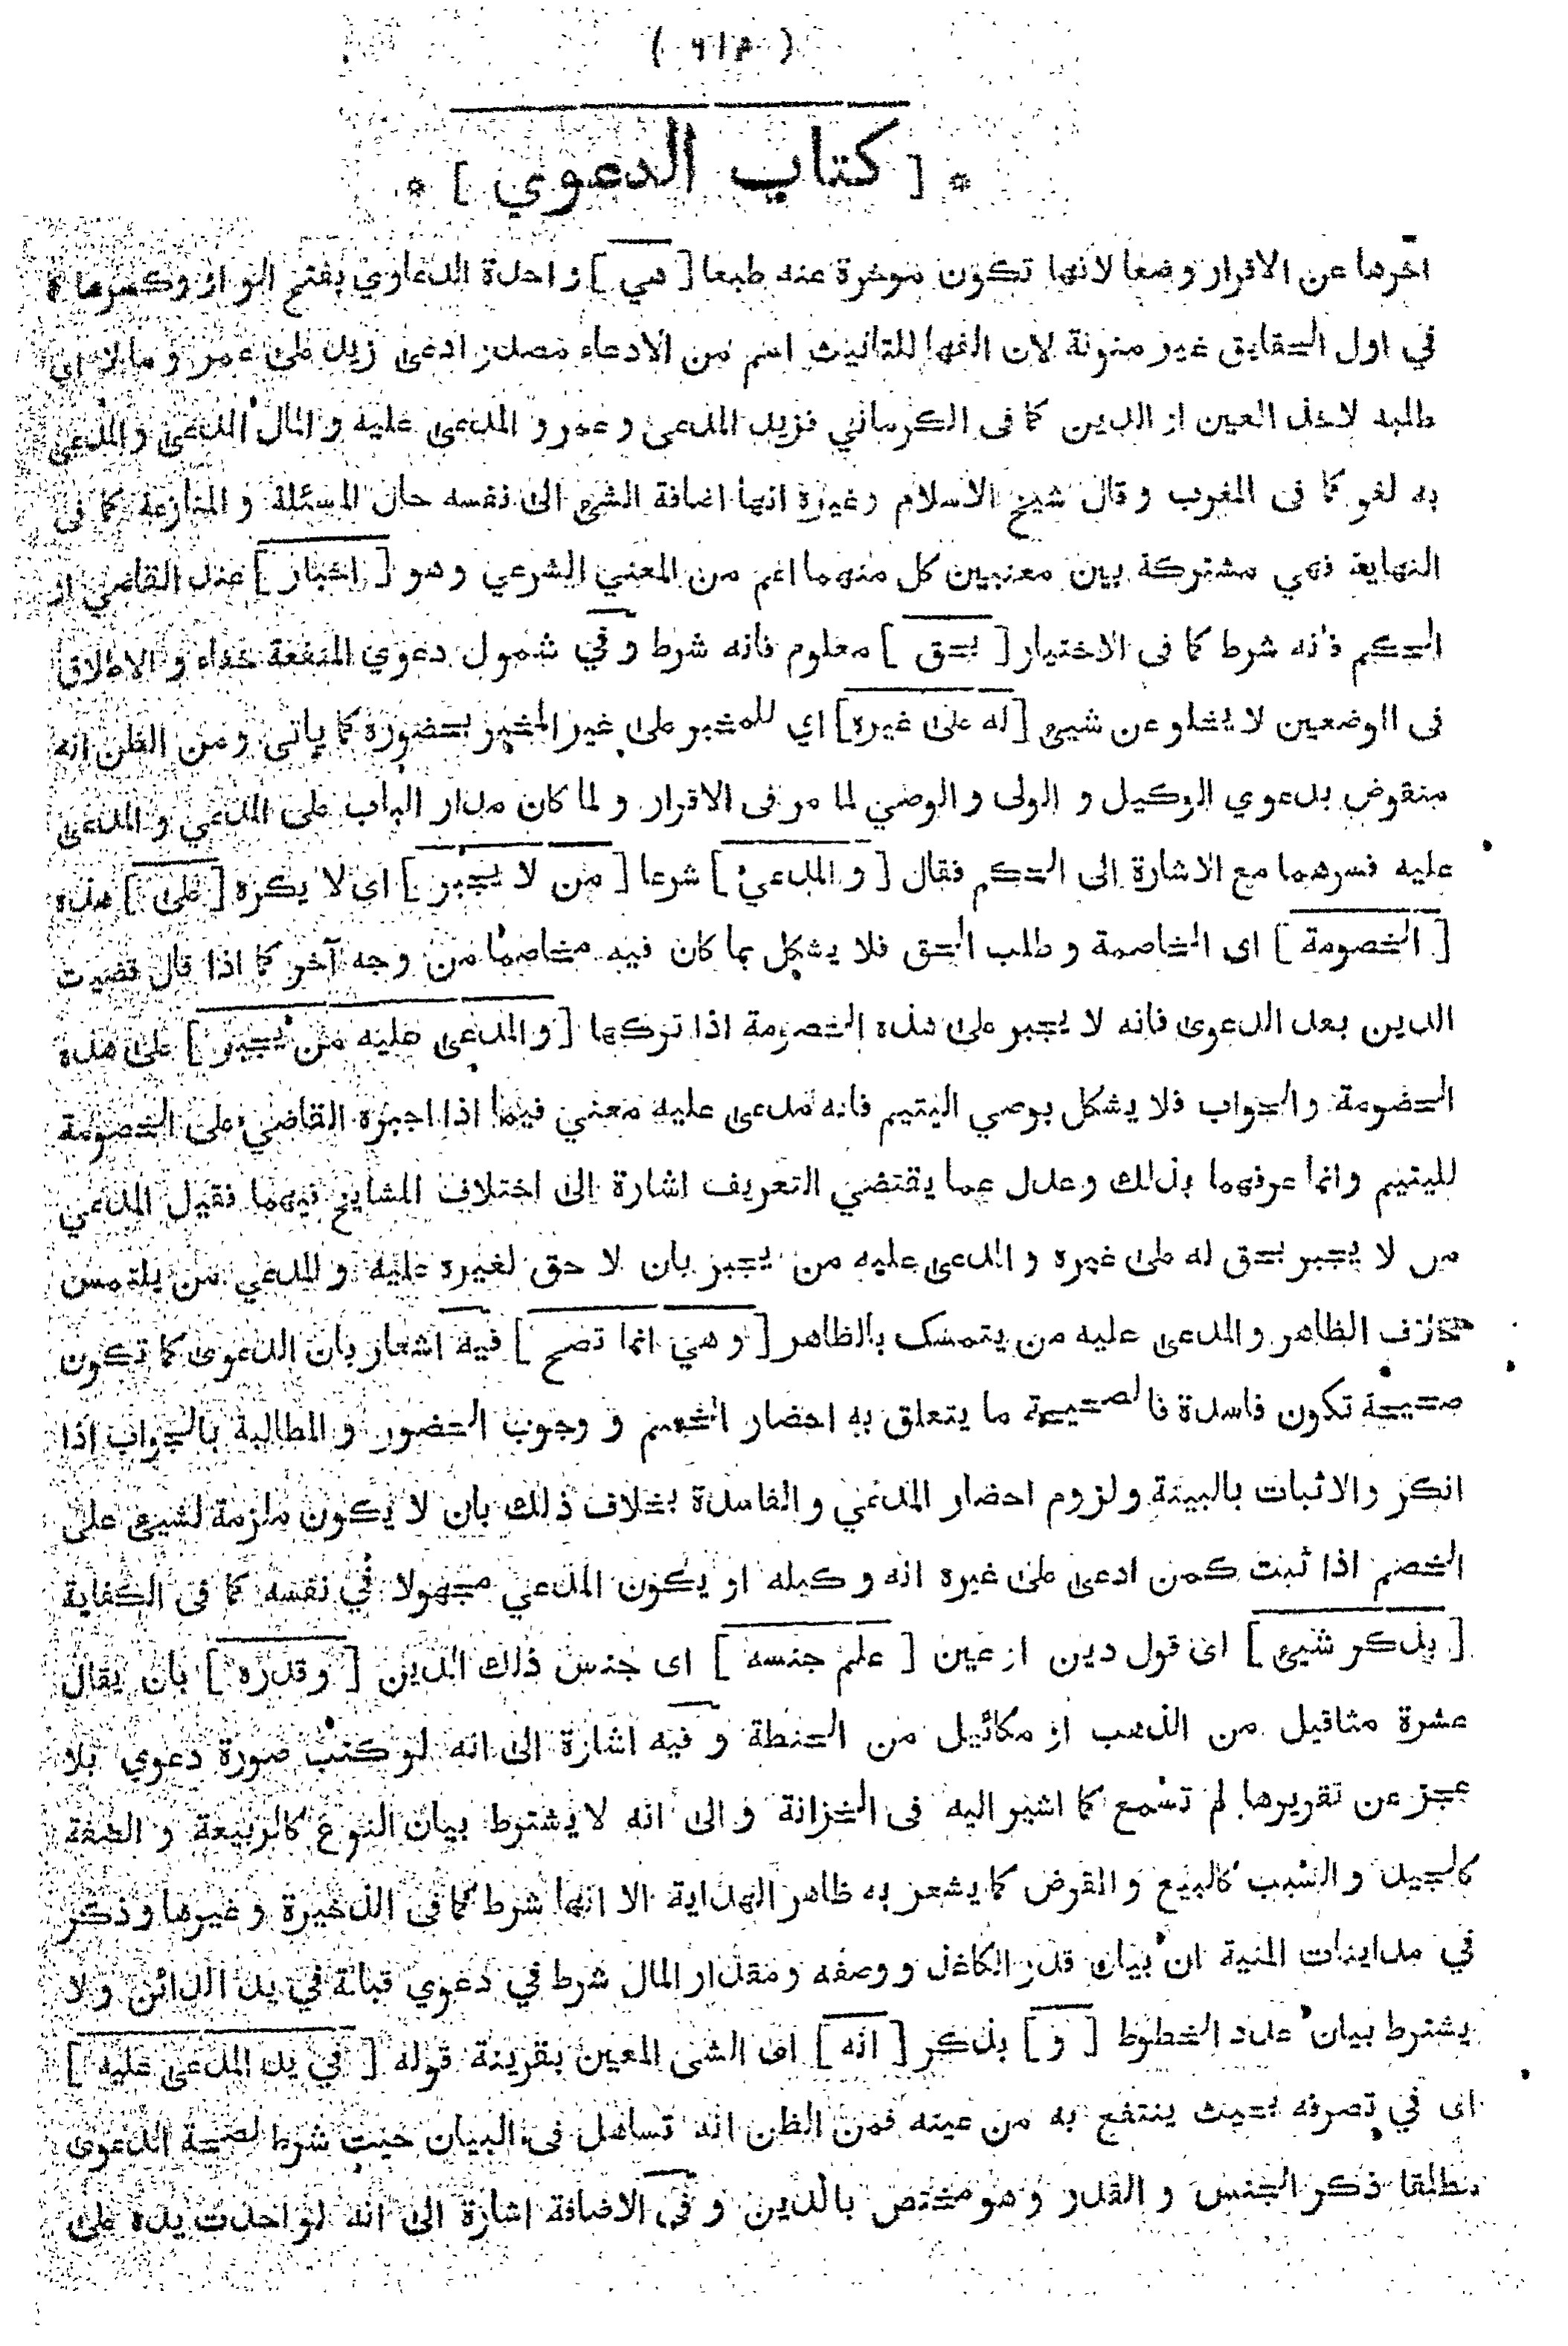 ( ٦١٢ )
* [ كتاب الدعوي ] *
اخرها عن الاقرار وضعا لانها تكون موخرة عنه طبعا [ هي ] واحدة الدعاوي بفتح الواو وكسرها
في اول الحقايق غير منونة لان الفها للتانيث اسم من الادعاء مصدر ادعى زيد على عمرو مالا اى
طلبه لاخذ العين او الدين كما فى الكرماني فزيد المدعى وعمرو المدعى عليه والمال المدعى والمدعى
به لغو كما فى المغرب وقال شيخ الاسلام وغيره انها اضافة الشئ الى نفسه حال المسئلة والمنازعة كما فى
النهاية فهي مشتركة بين معنيين كل منهما اعم من المعني الشرعي وهو [ اخبار ] عند القاضي او
الحكم فانه شرط كما فى الاختيار [ بحق ] معلوم فانه شرط وفي شمول دعوي المنفعة خفاء و الاطلاق
فى الوضعين لا يخلو عن شيئ [ له على غيره ] اي للمخبر على غير المخبر بحضوره كما ياتى ومن الظن انه
منقوض بدعوي الوكيل و الولى و الوصي لما مر فى الاقرار و لما كان مدار الباب على المدعي و المدعى
عليه فسرهما مع الاشارة الى الحكم فقال [ و المدعي ] شرعا [ من لا يجبر ] اى لا يكره [ على ] هذه
[ الخصومة ] اى المخاصمة و طلب الحق فلا يشكل بما كان فيه مخاصما من وجه آخر كما اذا قال قضيت
الدين بعد الدعوى فانه لا يجبر على هذه الخصومة اذا تركها [ والمدعى عليه من يجبر ] على هذه
الخصومة والجواب فلا يشكل بوصي اليتيم فانه مدعى عليه معني فيما اذا اجبره القاضي على الخصومة
لليتيم وانما عرفهما بذلك وعدل عما يقتضي التعريف اشارة الى اختلاف المشايخ فيهما فقيل المدعي
من لا يجبر بحق له على غيره و المدعى عليه من يجبر بان لا حق لغيره عليه و المدعي من يلتمس
خلاف الظاهر والمدعى عليه من يتمسك بالظاهر [ وهي انما تصح ] فيه اشعار بان الدعوى كما تكون
صحيحة تكون فاسدة فالصحيحة ما يتعلق به احضار الخصم و وجوب الحضور و المطالبة بالجواب اذا
انكر والاثبات بالبينة ولزوم احضار المدعي والفاسدة بخلاف ذلك بان لا يكون ملزمة لشيئ على
الخصم اذا ثبت كمن ادعى على غيره انه وكيله او يكون المدعي مجهولا في نفسه كما فى الكفاية
[ بذكر شيئ ] اى قول دين او عين [ علم جنسه ] اى جنس ذلك الدين [ وقدره ] بان يقال
عشرة مثاقيل من الذهب او مكائيل من الحنطة و فيه اشارة الى انه لو كتب صورة دعوي بلا
عجز عن تقريرها لم تسمع كما اشير اليه فى الخزانة و الى انه لا يشترط بيان النوع كالربيعة و الصفة
كالجيد و السبب كالبيع و القرض كما يشعر به ظاهر الهداية الا انها شرط كما فى الذخيرة و غيرها وذكر
في مداينات المنية ان بيان قدر الكاغذ ووصفه ومقدار المال شرط في دعوي قبالة في يد الدائن ولا
يشترط بيان عدد الخطوط [ و ] بذكر [ انه ] اى الشى المعين بقرينة قوله [ في يد المدعى عليه ]
اى في تصرفه بحيث ينتفع به من عينه فمن الظن انه تساهل فى البيان حيث شرط لصحة الدعوى
مطلقا ذكر الجنس و القدر وهو مختص بالدين و فى الاضافة اشارة الى انه لو احدث يده على